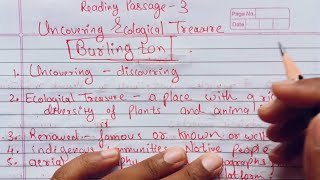 Reading Passage-3
Page No.
Date
Uncovering Ecological Treasure
Burlington
1. Uncovering - discovering
2. Ecological Treasure - a place with a
diversity of plants and animal
3. Renowent - famous or known or well
4. indigenous communities Native people
5. aerial